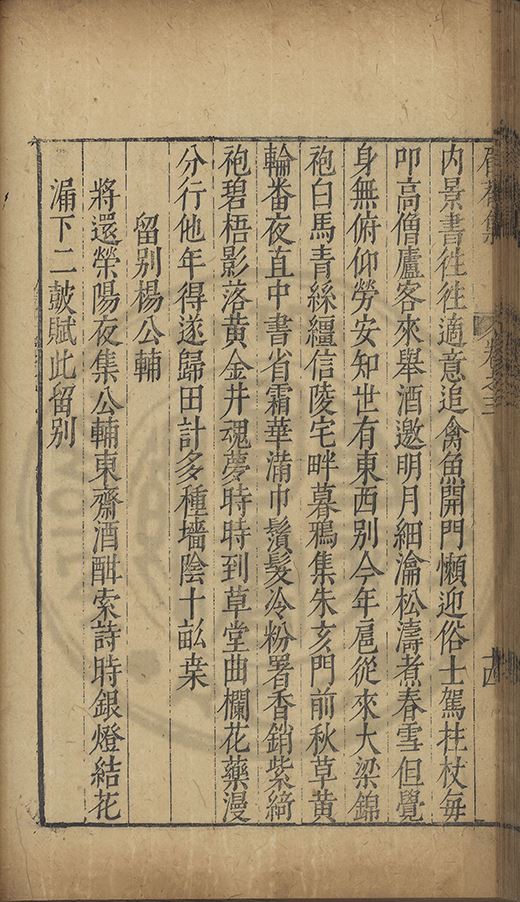 內景書徃徃適意追禽魚開門懶迎俗士駕拄杖每
叩高僧廬客來舉酒邀明月細瀹松濤煮春雪但覺
身無俯仰勞安知世有東西别今年扈從來大梁錦
袍白馬青絲繮信陵宅畔暮鴉集朱亥門前秋草黄
輪番夜直中書省霜華滿巾鬚髮冷粉署香銷紫綺
袍碧梧影落黄金井魂夢時時到草堂曲欄花藥漫
分行他年得遂歸田計多種墻陰十畝桒
留别楊公輔
將還榮陽夜集公輔東齋酒酣索詩時銀燈結花
漏下二皷賦此留别